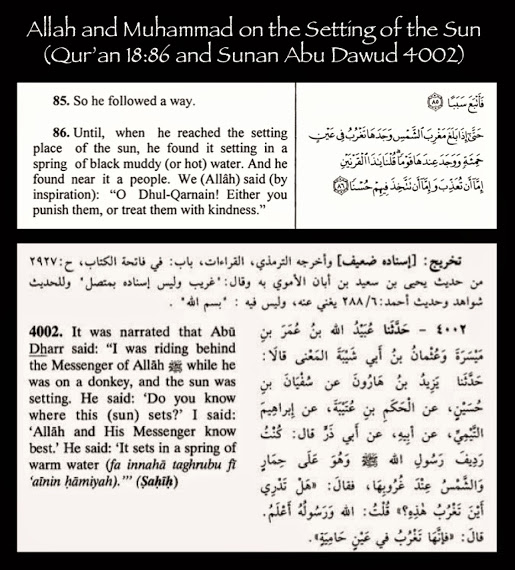 Allah and Muhammad on the Setting of the Sun
(Qur'an 18:86 and Sunan Abu Dawud 4002)
85. So he followed a way.
86. Until, when he reached the setting
place of the sun, he found it setting in a
spring of black muddy (or hot) water. And he
found near it a people. We (Allâh) said (by
inspiration): “O Dhul-Qarnain! Either you
punish them, or treat them with kindness.”
فَأَتْبَعَ سَبَبًا ﴿٨٥﴾
حَتَّىٰٓ إِذَا بَلَغَ مَغْرِبَ ٱلشَّمْسِ وَجَدَهَا تَغْرُبُ فِى عَيْنٍ
حَمِئَةٍ وَوَجَدَ عِندَهَا قَوْمًا ۗ قُلْنَا يَٰذَا ٱلْقَرْنَيْنِ
إِمَّآ أَن تُعَذِّبَ وَإِمَّآ أَن تَتَّخِذَ فِيهِمْ حُسْنًا ﴿٨٦﴾
تخريج: [إسناده ضعيف] وأخرجه الترمذي، القراءات، باب: في فاتحة الكتاب، ح: ٢٩٢٧
من حديث يحيى بن سعيد بن أبان الأموي به وقال: "غريب وليس إسناده بمتصل" وللحديث
شواهد وحديث أحمد: ٢٨٨/٦ يغني عنه، وليس فيه: "بسم الله".
4002. It was narrated that Abū
Dharr said: “I was riding behind
the Messenger of Allāh ﷺ while he
was on a donkey, and the sun was
setting. He said: ‘Do you know
where this (sun) sets?’ I said:
‘Allāh and His Messenger know
best.’ He said: ‘It sets in a spring of
warm water (fa innahā taghrubu fī
‘aīnin ḥāmiyah).’” (Ṣaḥīḥ)
٤٠٠٢ - حَدَّثَنَا عُبَيْدُ الله بنُ عُمَرَ بنِ
مَيْسَرَةَ وَعُثْمَانُ بنُ أَبي شَيْبَةَ المَعْنَى قالَا:
حَدَّثَنَا يَزِيدُ بنُ هَارُونَ عن سُفْيَانَ بنِ
حُسَيْنٍ، عن الْحَكَمِ بنِ عُتَيْبَةَ، عن إِبراهِيمَ
التَّيْمِيِّ، عن أَبِيهِ، عن أَبي ذَرٍّ قال: كُنْتُ
رَدِيفَ رَسُولِ الله ﷺ وَهُوَ عَلَى حِمَارٍ
وَالشَّمْسُ عِنْدَ غُرُوبِهَا، فقالَ: «هَلْ تَدْرِي
أَيْنَ تَغْرُبُ هٰذِهِ؟» قُلْتُ: الله وَرَسُولُهُ أَعْلَمُ.
قال: «فَإِنَّهَا تَغْرُبُ في عَيْنٍ حَامِيَةٍ».